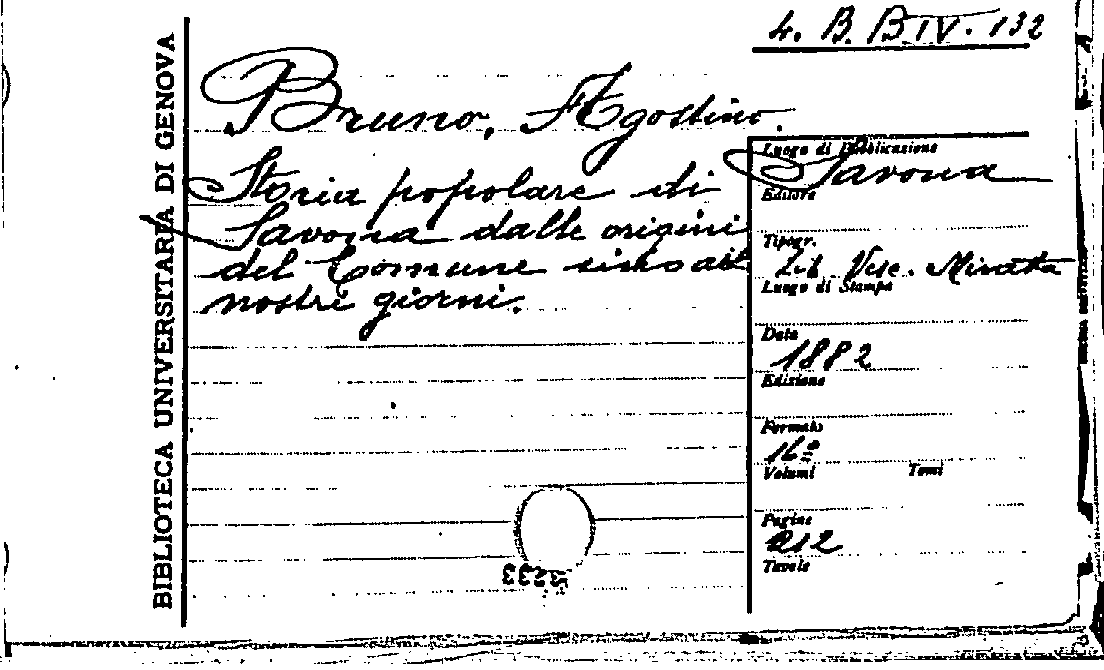 4. B. BIV. 132
BIBLIOTECA UNIVERSITARIA DI GENOVA
Bruno, Agostino.
Storia popolare di
Savona dalle origini
del Comune sino ai
nostri giorni.
Luogo di Pubblicazione
Savona
Editore
Tipogr.
Lib. Vesc. Miretta
Luogo di Stampa
Data
1882
Edizione
Formato
16º
Volumi Tomi
Pagine
212
Tavole